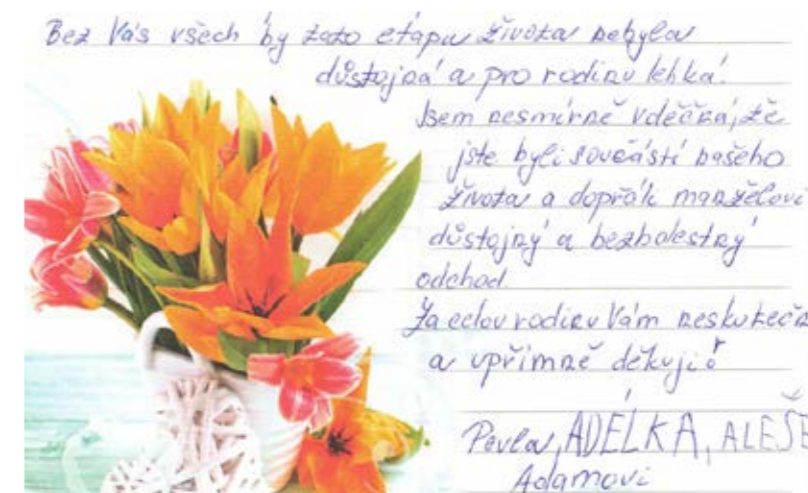 Bez Vás všech by tato etapa života nebyla
důstojná a pro rodinu lehká!
Jsem nesmírně vděčná, že
jste byli součástí našeho
života a dopřáli manželovi
důstojný a bezbolestný
odchod.
Za celou rodinu Vám neskutečn
a upřímně děkuji!
Pavla, ADÉLKA, ALEŠE
Adamovi